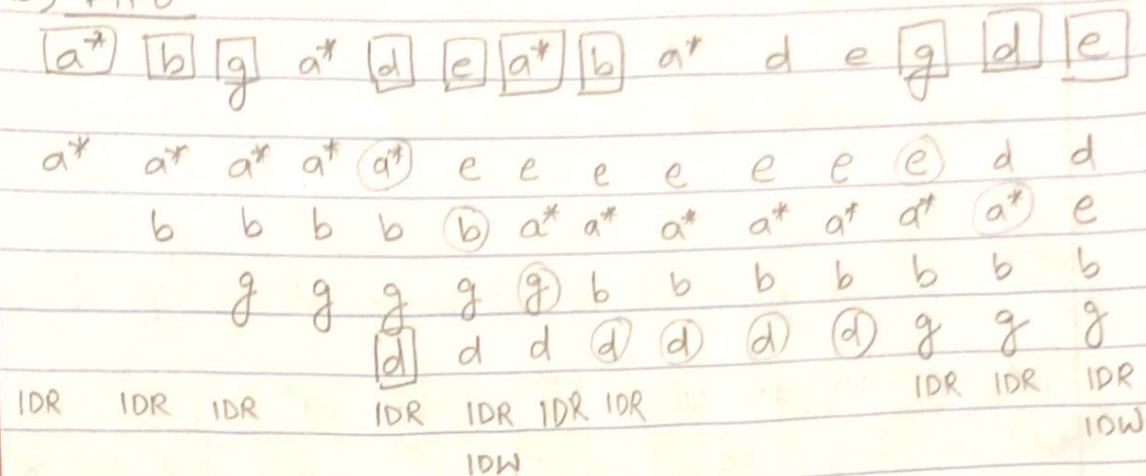 a* b g a* d e a* b a* d e g d e
a* a* a* a* a* e e e e e e e d d
b b b b b a* a* a* a* a* a* a* e
g g g g g b b b b b b b
d d d d d d d g g g
1DR 1DR 1DR 1DR 1DR 1DR 1DR 1DR 1DR 1DR
1DW 1DW